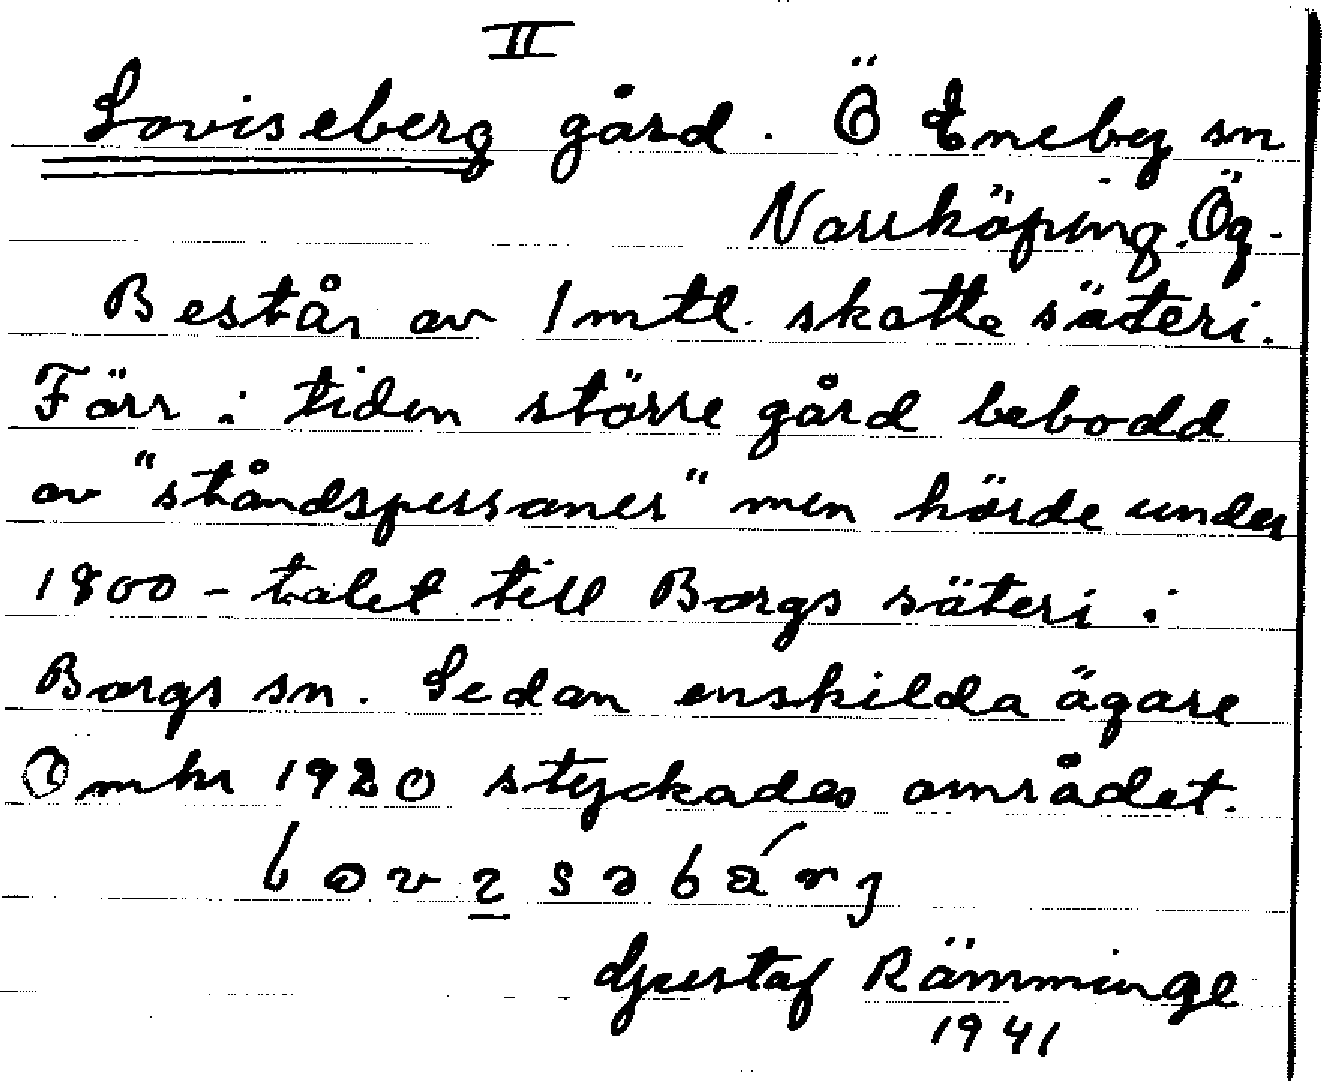 II
Loviseberg gård. Ö Eneby sn
Norrköping. Ög.
Består av 1 mtl. skatte säteri.
Förr i tiden större gård bebodd
av "ståndspersoner" men hörde under
1800-talet till Borgs säteri i
Borgs sn. Sedan enskilda ägare
Omkr 1920 styckades området.
Gustaf Rämminge
1941